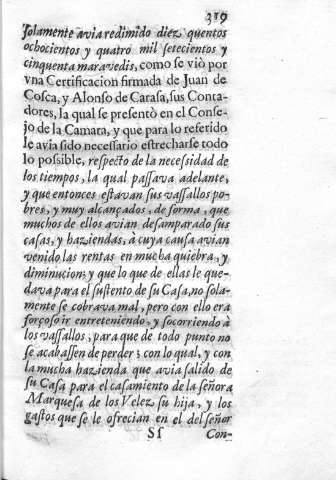 319
solamente avia redimido diez quentos
ochocientos y quatro mil setecientos y
cinquenta maravedis, como se viò por
vna Certificacion firmada de Juan de
Cosca, y Alonso de Carasa, sus Conta-
dores, la qual se presentò en el Conse-
jo de la Camara, y que para lo referido
le avia sido necessario estrecharse todo
lo possible, respecto de la necessidad de
los tiempos, la qual passava adelante,
y que entonces estavan sus vassallos po-
bres, y muy alcançados, de forma, que
muchos de ellos avian desamparado sus
casas, y haziendas, à cuya causa avian
venido las rentas en mucha quiebra, y
diminucion, y que lo que de ellas le que-
dava para el sustento de su Casa, no sola-
mente se cobrava mal, pero con ello era
forçoso ir entreteniendo, y socorriendo à
los vassallos, para que de todo punto no
se acabassen de perder; con lo qual, y con
la mucha hazienda que avia salido de
su Casa para el casamiento de la señora
Marquesa de los Velez su hija, y los
gastos que se le ofrecian en el del señor
Sſ Con-